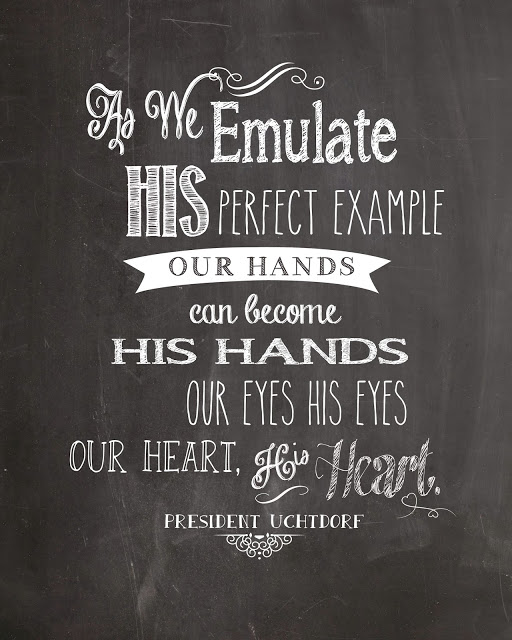 As We Emulate
HIS PERFECT EXAMPLE
OUR HANDS
can become
HIS HANDS
OUR EYES HIS EYES
OUR HEART, His Heart.
PRESIDENT UCHTDORF